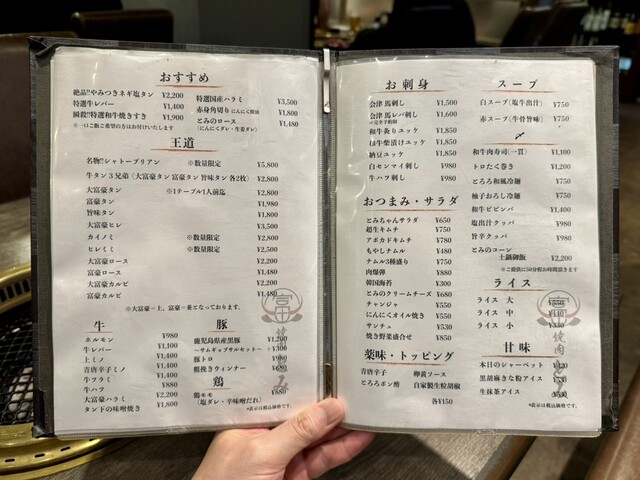 おすすめ
絶品!!やみつきネギ塩タン ¥2,200
特選牛レバー ¥1,400
瞬殺!!特選和牛焼きすき ¥1,900
※一口ご飯ご希望の方はお付けいたします
特選国産ハラミ ¥3,500
赤身角切り にんにく醤油 ¥1,800
とみのロース ¥1,480
(にんにくダレ・生姜ダレ)
王道
名物!!シャトーブリアン ※数量限定 ¥5,800
牛タン3兄弟(大富豪タン 富豪タン 旨味タン 各2枚) ¥2,800
大富豪タン ※1テーブル1人前迄 ¥2,800
富豪タン ¥1,980
旨味タン ¥1,800
大富豪ヒレ ¥3,500
カイノミ ※数量限定 ¥2,800
ヒレミミ ※数量限定 ¥2,500
大富豪ロース ¥2,200
富豪ロース ¥1,480
大富豪カルビ ¥2,200
富豪カルビ ¥1,480
※大富豪=上、富豪=並となっております。
牛
ホルモン ¥980
牛レバー ¥1,100
上ミノ ¥1,400
青唐辛子ミノ ¥1,400
牛フラミ ¥1,100
牛ハツ ¥980
大富豪ハラミ ¥2,200
タン下の味噌焼き ¥1,800
豚
鹿児島県産黒豚 ¥1,200
〜サムギョプサルセット〜 ¥300
豚トロ ¥980
粗挽きウィンナー ¥680
鶏
鶏モモ ¥880
(塩ダレ・辛味噌だれ)
※表示は税込価格です。
お刺身
会津 馬刺し ¥1,500
会津 馬レバ刺し ¥1,600
※完全予約制
和牛炙りユッケ ¥1,880
和牛柴漬けユッケ ¥1,880
納豆ユッケ ¥1,880
白センマイ刺し ¥980
牛ハツ刺し ¥980
おつまみ・サラダ
とみちゃんサラダ ¥650
超生キムチ ¥750
アボカドキムチ ¥780
もやしナムル ¥480
ナムル3種盛り ¥750
肉爆弾 ¥880
韓国海苔 ¥300
とみのクリームチーズ ¥680
チャンジャ ¥550
にんにくオイル焼き ¥550
サンチュ ¥530
焼き野菜盛合せ ¥850
薬味・トッピング
青唐辛子 卵黄ソース
とろろポン酢 自家製生粒胡椒
各¥150
スープ
白スープ(塩牛出汁) ¥750
赤スープ(牛骨旨味) ¥750
〆
和牛肉寿司(一貫) ¥1,100
トロたく巻き ¥1,200
とろろ和風冷麺 ¥750
柚子おろし冷麺 ¥750
和牛ビビンバ ¥1,400
塩出汁クッパ ¥980
旨辛クッパ ¥980
とみのコーン
土鍋御飯 ¥2,200
※ご提供に50分程お時間頂きます
ライス
ライス 大
ライス 中
ライス 小
甘味
本日のシャーベット
黒胡麻きな粉アイス
生抹茶アイス
※表示は税込価格です。